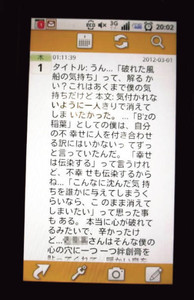 3G
20:02
木
01:11:39
2012-03-01
1
タイトル: うん...「破れた風
船の気持ち」って、解るか
い？これはあくまで僕の気
持ちだけど 本文: 気付かれな
いように一人きりで消えて
しまいたかった。...「B'zの
稲葉」としての僕は、自分
の不幸せに人を付き合わせ
る訳にはいかないってずっ
と言っていたんだ。「幸せ
は伝染する」って言うけれ
ど、不幸せも伝染するから
ね...「こんなに沈んだ気持
ちを誰かに与えてしまうく
らいなら、このまま消えて
しまいたい」って思った事も
ある。本当に心が破れてる
みたいで、辛かったけど
...さんはそんな僕の
心の穴に一つ一つ絆創膏を